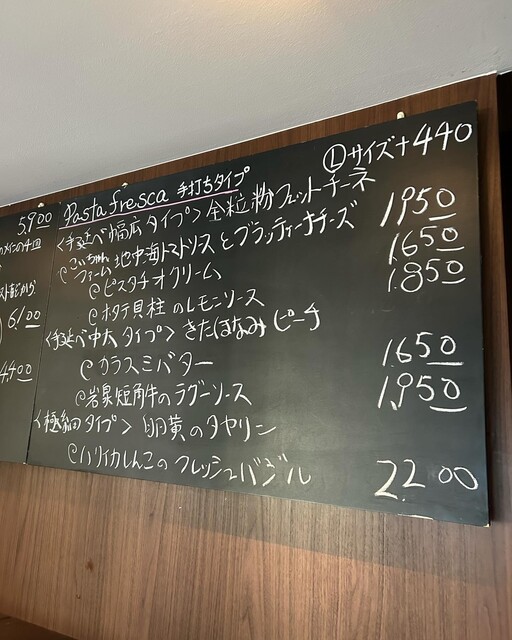 5,900
のメインの4皿
6,100
4,400
Pasta fresca 手打ちタイプ
Ⓛサイズ+440
<手延べ幅広タイプ>全粒粉フェットチーネ
@ごっちゃんファーム 地中海トマトソースとブラッティーナチーズ 1,950
@ピスタチオクリーム 1,650
@ホタテ貝柱のレモンソース 1,850
<手延べ中太タイプ>きたほなみピーチ
@カラスミバター 1,650
@岩泉短角牛のラグーソース 1,950
<極細タイプ>卵黄のタヤリン
@ハリイカしんこのフレッシュバジル 2,200